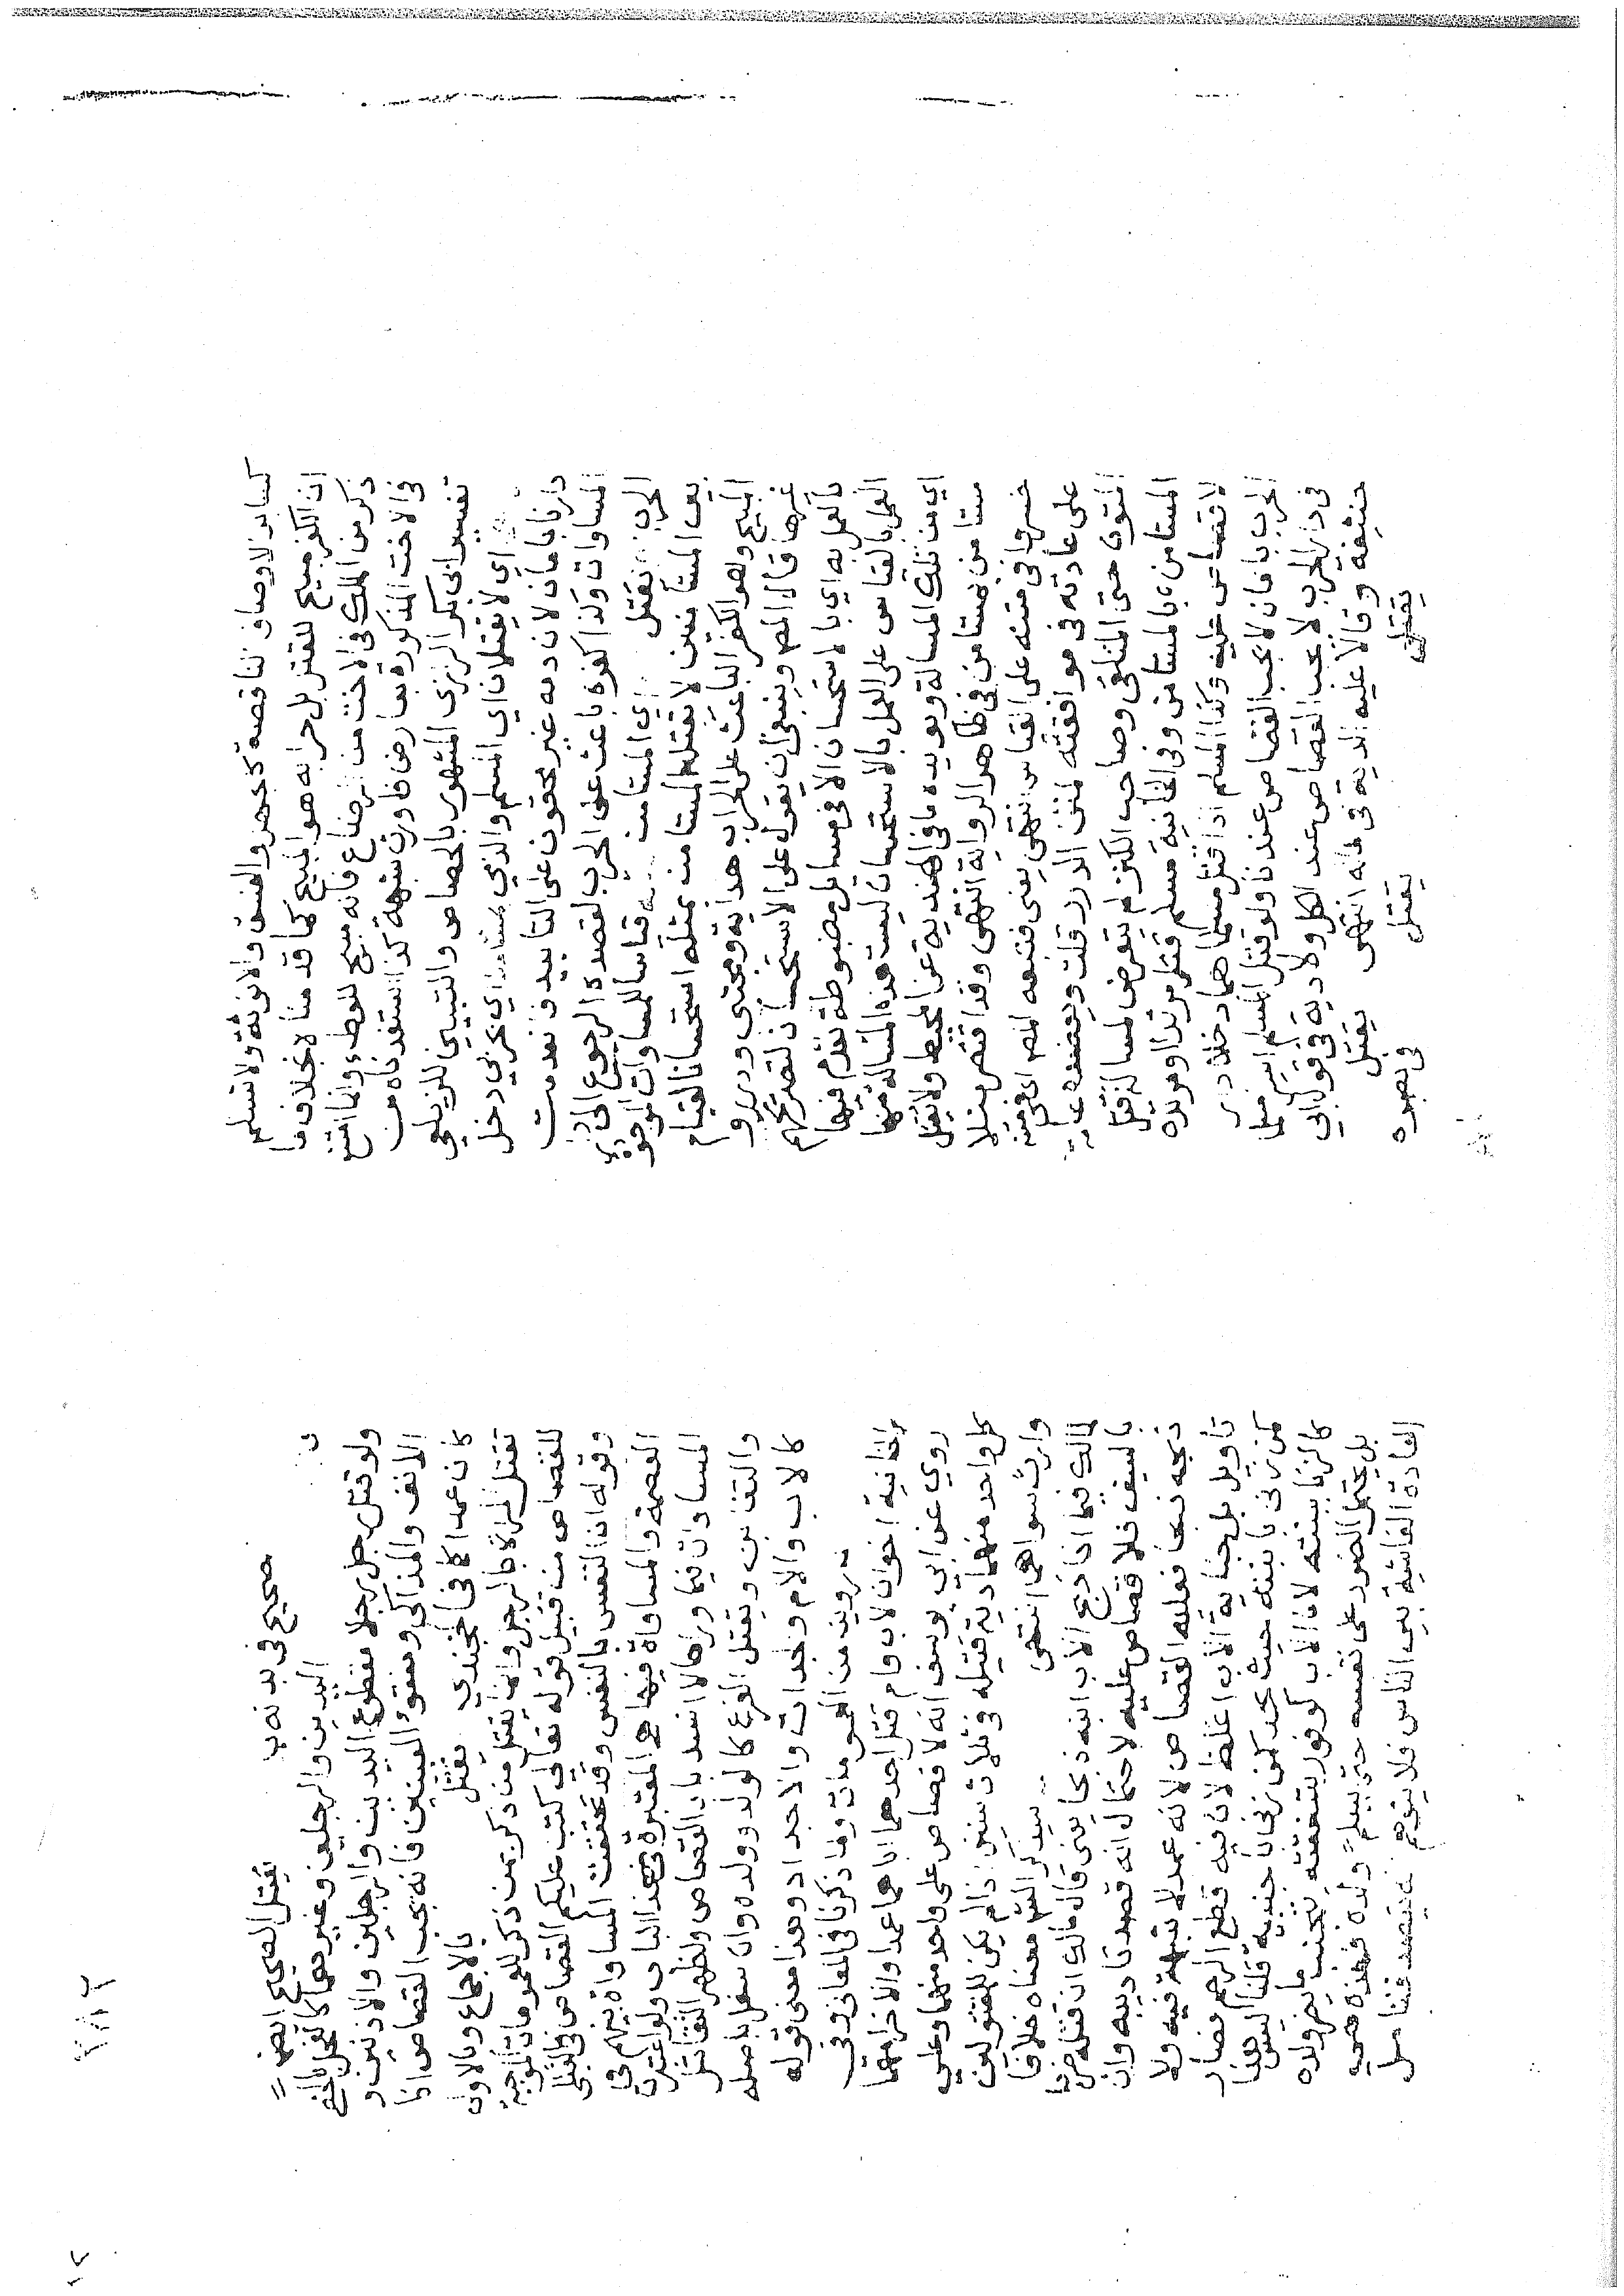 كسائر الاوصاف نناقصة كجصر والفسق والانوثة ولا نسلم
ان الكفر مبيح للقتل بل حرابه هو المبيح كما قدمنا بخلاف ما
ذكر من الملك في الاخت من الرضاع فانه مبيح للوطء وانما امتنع
في الاخت المذكورة بعارض فاورث شبهة كذا استفدناه من
تفسير ابي بكر الرازي المشهور بالجصاص والتبيين للزيلعي
اي لا يقتلان اي المسلم والذمي بمستامن اي بحربي دخل
دارنا بامان لان دمه غير محقون على التابيد فانعدمت
المساوات وكذا كفره باعث على الحرب لقصده الرجوع الى دار
الحرب يقتل اي المستامن به قياسا للمساوات
بين المستامنين لا يقتل المستامن بمثله استحسانا لقيام
المبيح وهو الكفر الباعث على الحراب هداية ومجتبى ودرر و
غيرها قال المص وينبغي ان يعول على الاستحسان لتصريحهم
بالعمل به اي بالاستحسان الا في مسايل مضبوطة تقدم فيها
العمل بالقياس على العمل بالاستحسان ليست هذه المسالة منها
اي من تلك المسالة ويويده ما في الهندية عن المحيط ولا يقتل
مستامن بمستامن في ظاهر الرواية انتهى وقد اقتصر منلا
خسرو في متنه على القياس انتهى يعني فتبعه المص
على عادته في موافقته لمتن الدرر قلت ويعضده عامة
المتون حتى الملتقى وصاحب الكنز لم يتعرض لمسالة قتل
المستامن بالمستامن وفي الخانية مسلم قتل مرتدا او مرتدة
لا قصاص عليه وكذا المسلم اذا قتل مسلما هما دخلا دار
الحرب بامان لا يجب القصاص عندنا ولو قتل المسلم اسيرا مسلما
في دار الحرب لا يجب القصاص عند الكل ولا دية في قول ابي
حنيفة وقالا عليه الدية في ماله انتهى يقتل
يقتل يقتل في بصره
صحيح في بدنه يقتل الصحيح ايضا
اليدين والرجلين وغيرهما
ولو قتل رجل رجلا مقطوع اليدين والرجلين والاذنين و
الانف والمذاكير ومفقوء العينين فانه يجب القصاص اذا
كان عمدا كما في الخجندي يقتل بالاجماع وبالاولى
تقتل المراة بالرجل وانما يقتل من ذكر بمن ذكر للعمومات الموجبة
للقصاص من قبيل قوله تعالى كتب عليكم القصاص في القتلى
وقوله ان النفس بالنفس وقد تحققت المساواة بينهم في
العصمة والمساواة فيها هي المعتبرة في هذا الباب ولو اعتبرت
المساوات فيما وراها لانسد باب القصاص ولظهر التقاتل
والتفاني ويقتل الفرع كالولد وولده وان سفل باصله
كالاب والام والجدات والاجداد وهذا معنى قوله
روينا من العمومات وما ذكرنا في المعاني وفي
الخانية اخوان لاب وام قتل احدهما اباهما عمدا والاخر امهما
روي عن ابي يوسف انه لا قصاص على واحد منهما وعلى
كل واحد منهما دية قتيله في ثلاث سنين اذا لم يكن للمقتولين
وارث سواهما انتهى سيذكر الش معناه خلافا
لمالك فيما اذا ذبح الاب ابنه ذبحا يعني قال مالك ان قتله ضربا
بالسيف فلا قصاص عليه لاحتمال انه قصد تاديبه وان
ذبحه ذبحا فعليه القصاص لانه عمد لا شبهة فيه ولا
تاويل بل جناية الاب اغلظ لان فيه قطع الرحم فصار
كمن زنى بابنته حيث يحد كمن زنى باجنبية قلنا ليس هذا
كالزنا ببنته لان الاب لوفور شفقته يتجنب ما يضر ولده
بل يتحمل الضرر على نفسه حتى يسلم ولده فهذه هي
العادة الفاشية بين الناس فلا يتوهم انه يقصد فتامل